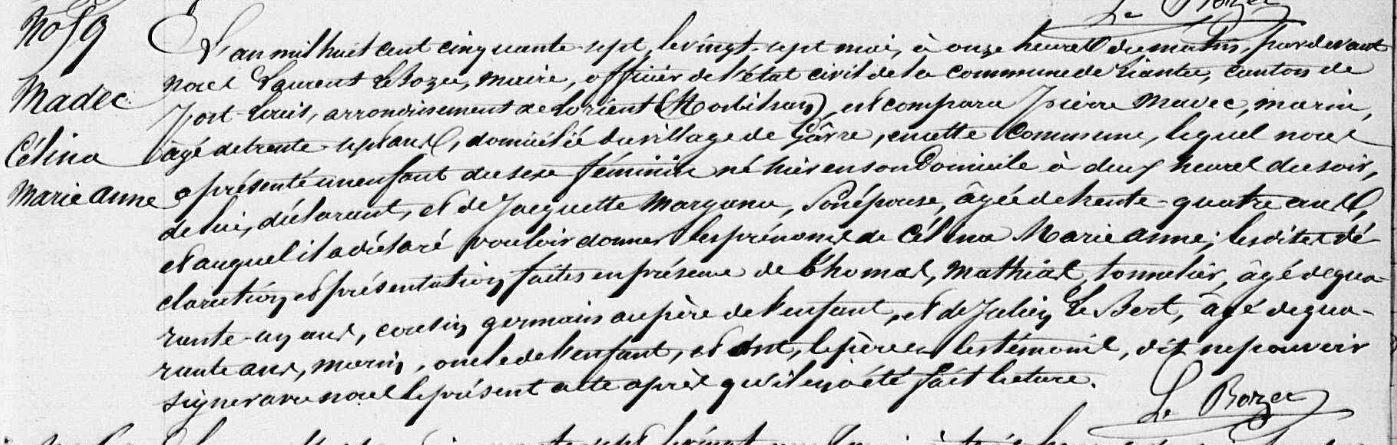 Le Bozec
No 59
Madec
Célina
Marie anne
L'an mil huit cent cinquante-sept, le vingt-sept mai, à onze heures du matin, pardevant
nous Laurent Le Bozec, maire, officier de l'état civil de la commune de Riantec, canton de
Port-Louis, arrondissement de Lorient (Morbihan), est comparu Pierre Madec, marin,
âgé de trente-sept ans, domicilié du village de Gâvre, en cette commune, lequel nous
a présenté un enfant du sexe féminin né hier en son Domicile à deux heures du soir,
de lui, déclarant, et de Jacquette Margana, son épouse, âgée de trente-quatre ans,
et auquel il a déclaré vouloir donner les prénoms de Célina Marie anne; lesdites dé-
claration et présentation faites en présence de Thomas, Mathias, tonnelier, âgé de qua-
rante-un ans, cousin germain au père de l'enfant, et de Julien Le Bert, âgé de qua-
rante ans, marin, oncle de l'enfant, et ont, le père et les témoins, dit ne pouvoir
signer avec nous le présent acte après qu'il en a été fait lecture.
Le Bozec